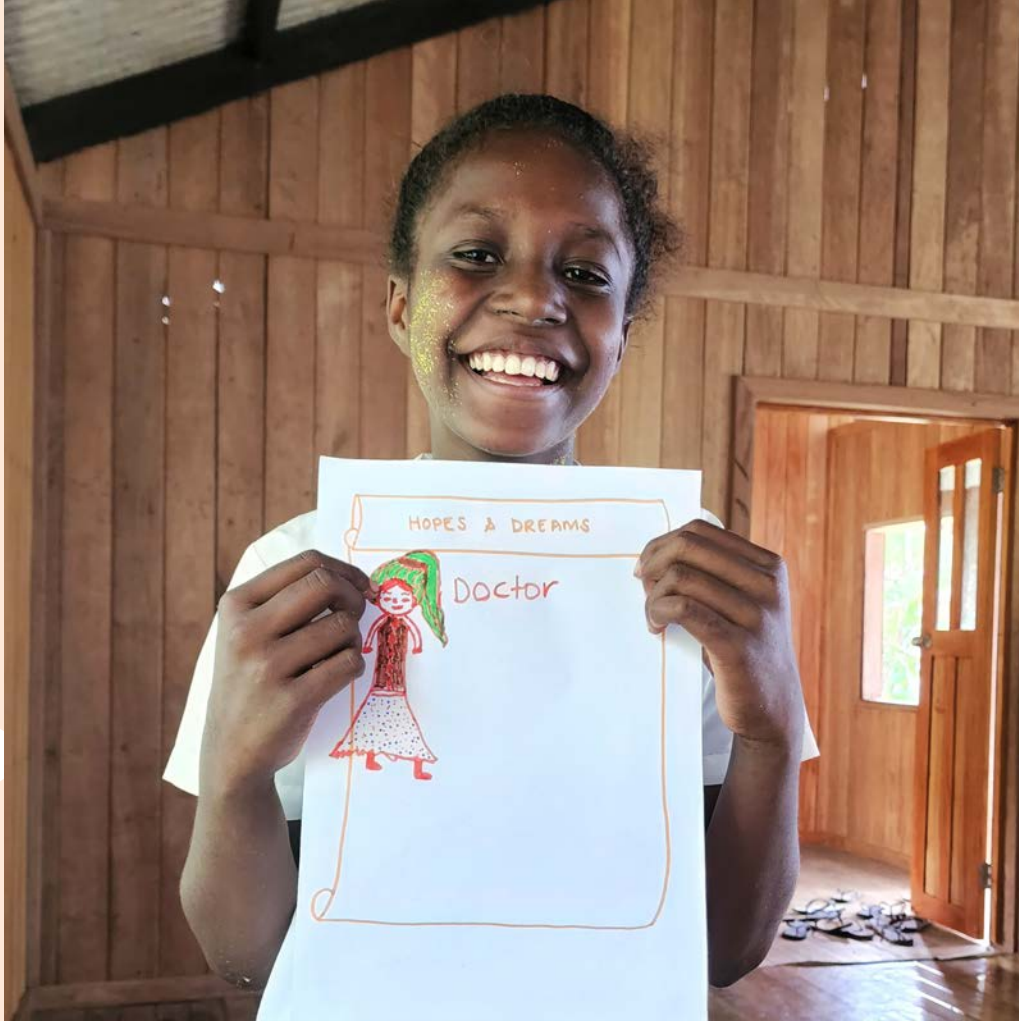 HOPES & DREAMS
Doctor